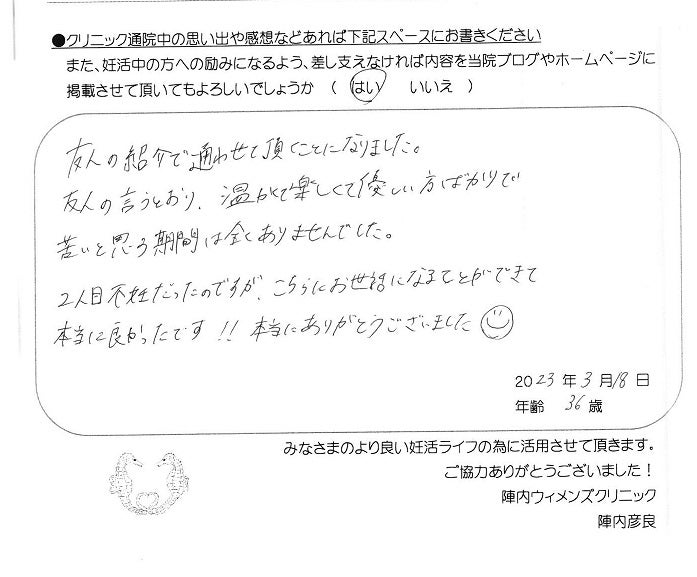 ●クリニック通院中の思い出や感想などあれば下記スペースにお書きください
また、妊活中の方への励みになるよう、差し支えなければ内容を当院ブログやホームページに
掲載させて頂いてもよろしいでしょうか （ はい いいえ ）
友人の紹介で通わせて頂くことになりました。
友人の言うとおり、温かくて楽しくて優しい方ばかりで
苦いと思う期間は全くありませんでした。
2人目不妊だったのですが、こちらにお世話になることができて
本当に良かったです!! 本当にありがとうございました
2023年3月18日
年齢 36歳
みなさまのより良い妊活ライフの為に活用させて頂きます。
ご協力ありがとうございました！
陣内ウィメンズクリニック
陣内彦良